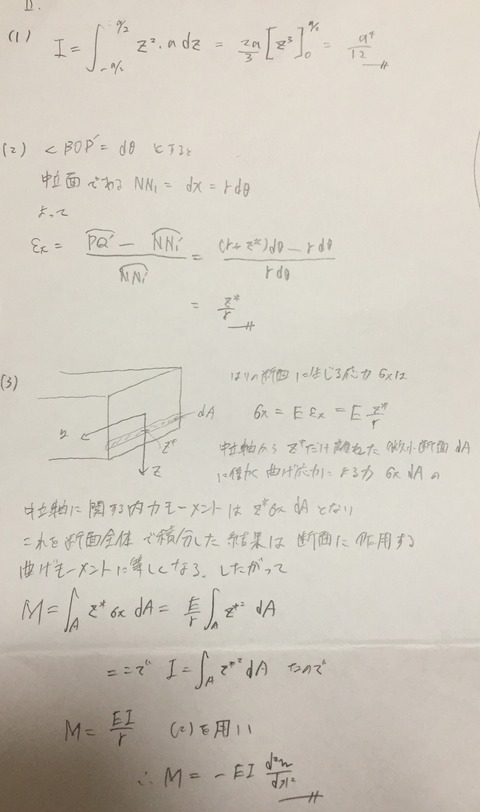 II.
(1) I = ∫_{-a/2}^{a/2} z²·a dz = 2a/3 [z³]_0^{a/2} = a⁴/12
(2) <BOP' = dθ とすると
中立面である NN₁ = dx = r dθ
よって
εx = (PQ' − NN₁')/NN₁' = ((r+z*)dθ − r dθ)/(r dθ)
= z*/r
(3)
dA
z*
z
はりの断面に生じる応力 σx は
σx = E εx = E z*/r
中立軸から z* だけ離れた微小断面 dA
に働く曲げ応力による力 σx dA の
中立軸に関する内力モーメントは z* σx dA となり
これを断面全体で積分した結果は断面に作用する
曲げモーメントに等しくなる. したがって
M = ∫_A z* σx dA = E/r ∫_A z*² dA
ここで I = ∫_A z*² dA なので
M = EI/r (2)を用い
∴ M = −EI d²w/dx²